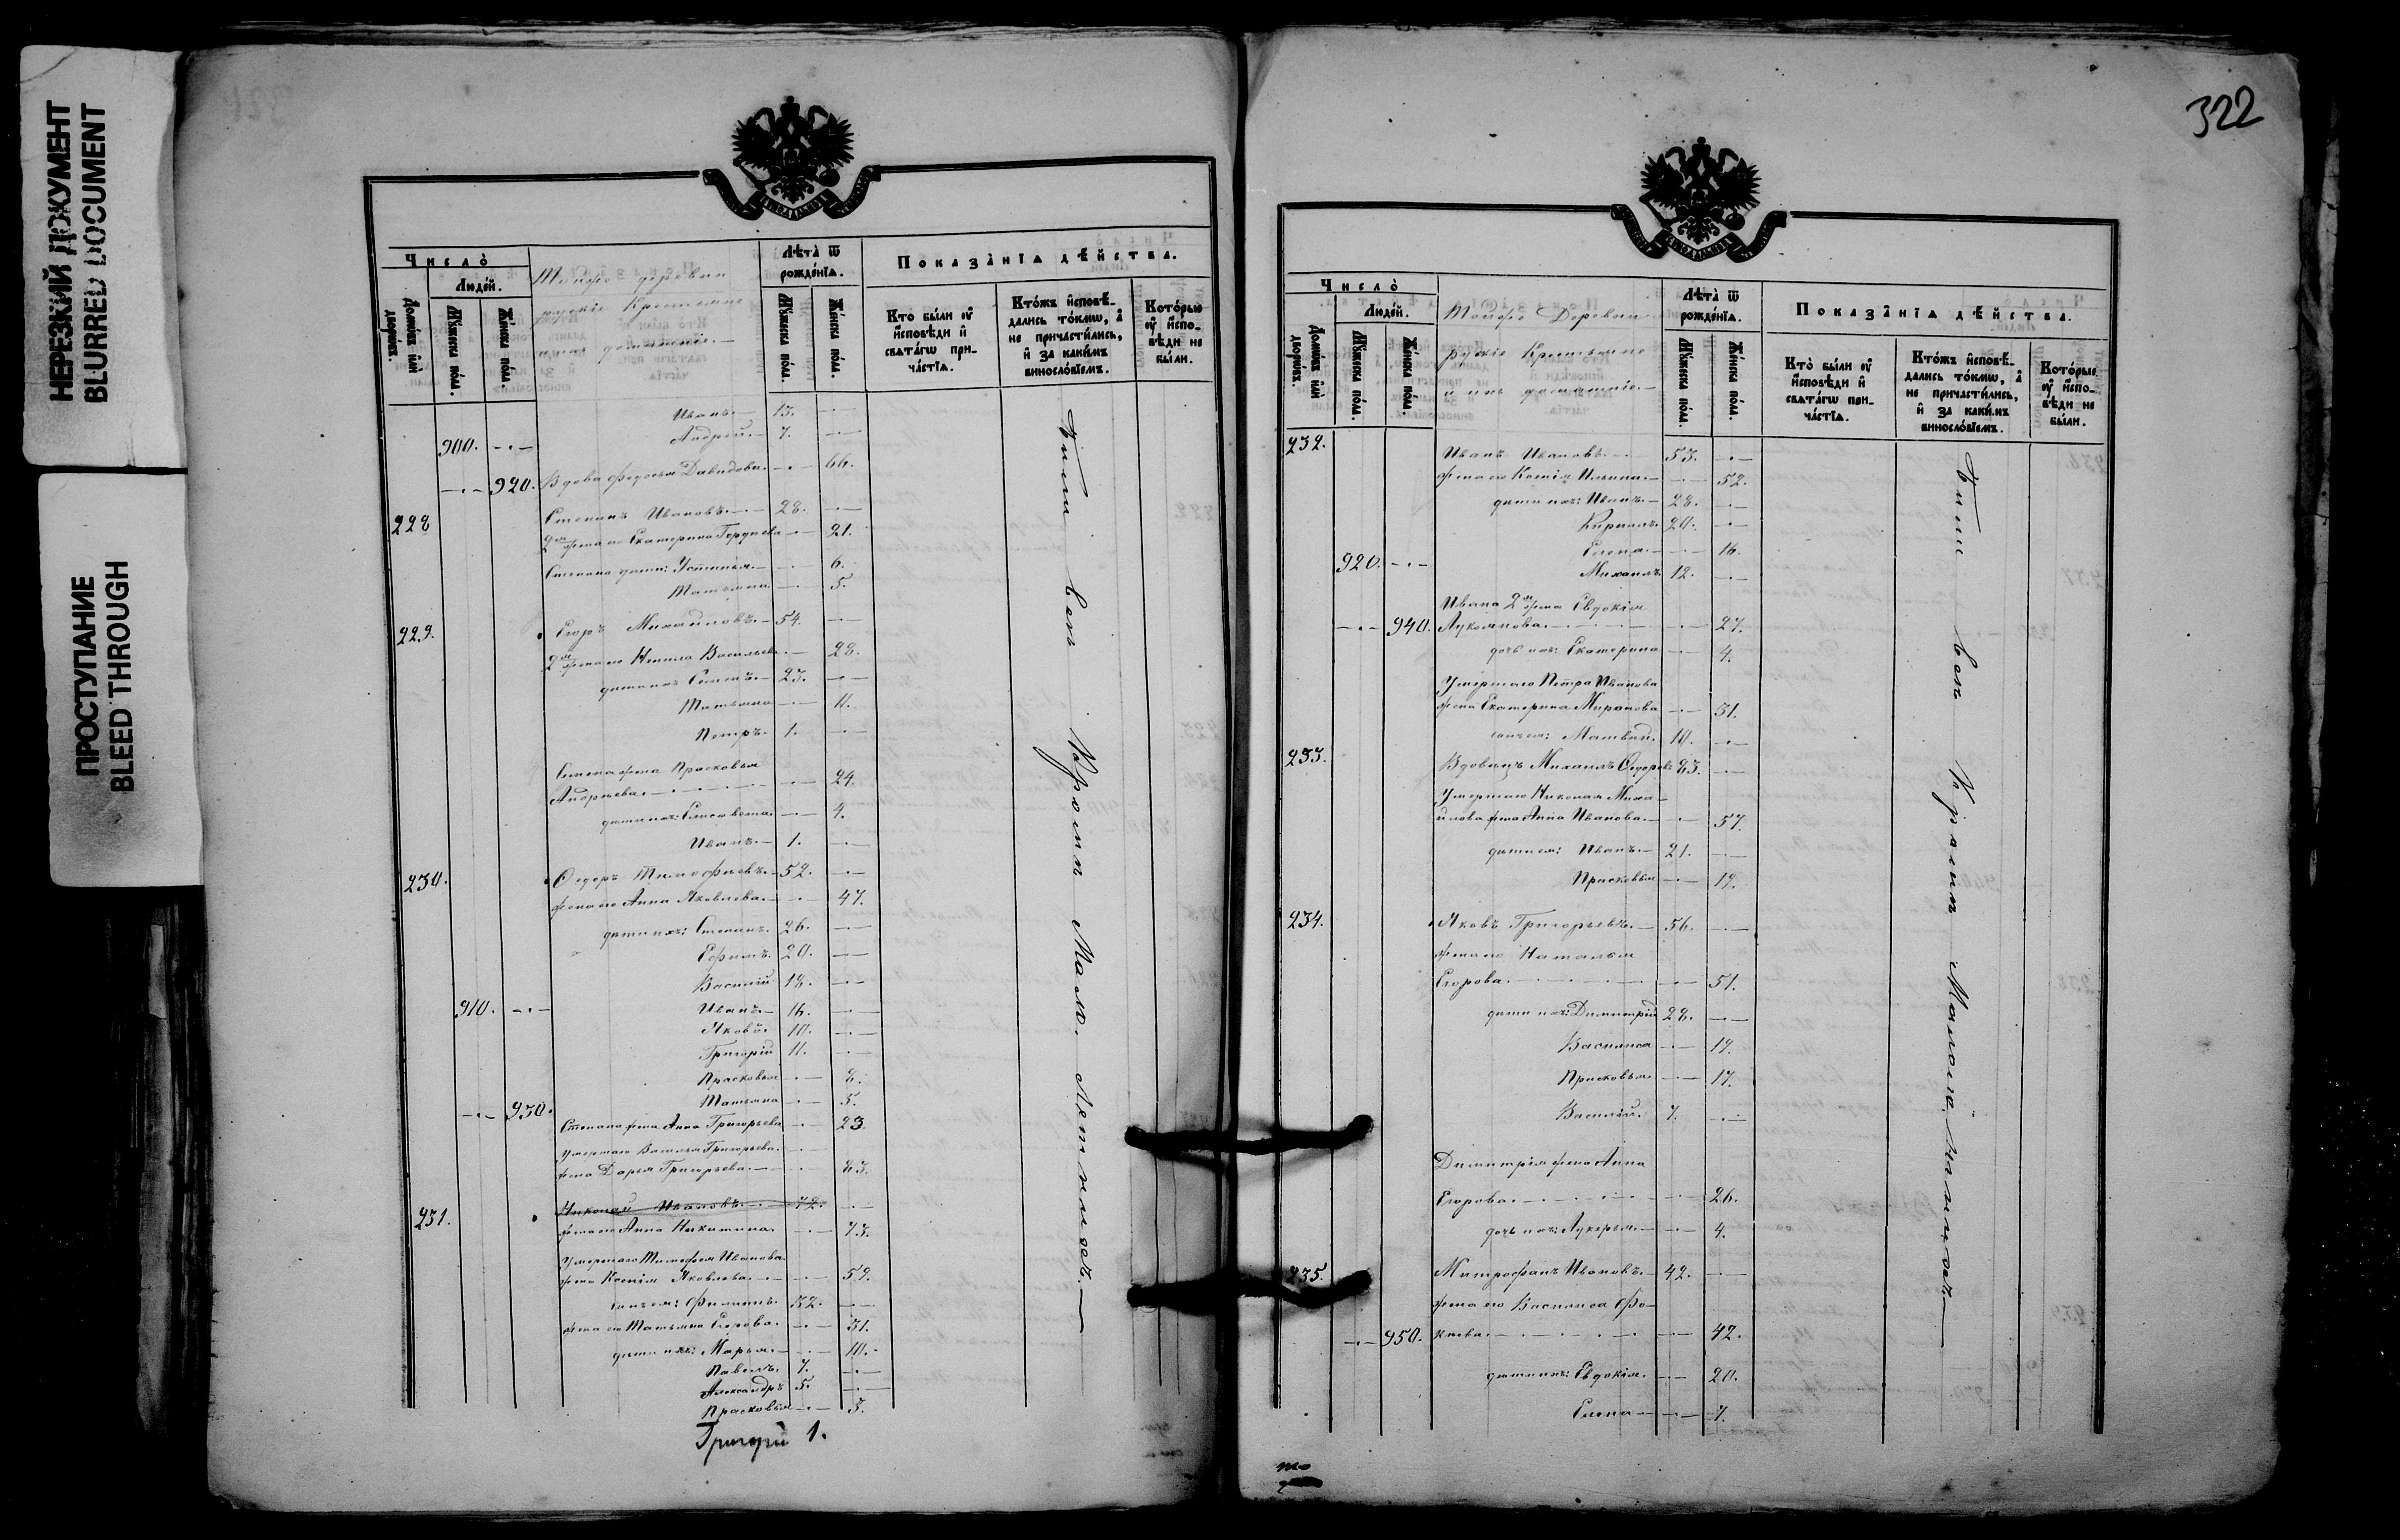 НЕРЕЗКИЙ ДОКУМЕНТ
BLURRED DOCUMENT
ПРОСТУПАНИЕ
BLEED THROUGH
Число̀
Людей.
Домовъ или дворовъ.
Мꙋжеска полꙋ.
Женска полꙋ.
Тойже деревни
русскіе Крестьяне
и ихъ домашніе. —
Лѣта̀ ѿ рожденїѧ.
Мꙋжеска полꙋ.
Женска полꙋ.
Показа̀нїѧ дѣйства.
Кто̀ были оу̓ исповѣди и свѧта́гѡ при-
ча́стїѧ.
Кто́жъ исповѣ-
дались то́кмѡ, а҆
не причасти́лись,
и за каки́мъ
винослóвїемъ.
Кото́рые
оу̓ испо-
вѣди не
были.
Иванъ. — 13. —
900. — Андрей. — 7. —
— 920. Вдова Ѳедосья Давидова. — 66.
228 Степанъ Ивановъ. — 28. —
2я жена его Екатерина Гордѣева — 21.
Степана дѣти: Устинья. — 6.
Татьяна — 5.
229. Егоръ Михайловъ. — 54. —
2я жена его Ненила Васильева — 28.
дѣти ихъ Семенъ. — 23. —
Татьяна — 11.
Петръ. 1. —
Семена жена Прасковья
Андреева. — 24.
дѣти ихъ: Елисавета. — 4.
Иванъ. — 1. —
230. Ѳедоръ Тимофѣевъ. — 52. —
жена его Анна Яковлева. — 47.
дѣти ихъ: Степанъ. 26. —
Ефимъ. 20. —
Василій 18. —
910. — Иванъ. — 16. —
Яковъ. 10. —
Григорій 11. —
Прасковья — 8.
— 930. Татьяна — 5.
Степана жена Анна Григорьева — 23.
Умершаго Василья Григорьева
жена Дарья Григорьева. — 63.
231. Николай Ивановъ. — 72. —
жена его Анна Никитина. — 73.
Умершаго Тимофея Иванова
жена Ксенія Яковлева. — 59.
сынъ ея: Филиппъ. 32. —
жена его Татьяна Егорова. — 31.
дѣти ихъ: Марья. — 10.
Павелъ. 7. —
Александръ 5. —
Прасковья — 3.
Григорій 1.
Были всѣ Кромѣ Малолѣтнихъ. —
322
Число̀
Людей.
Домовъ или дворовъ.
Мꙋжеска полꙋ.
Женска полꙋ.
Тойже Деревни
русскіе Крестьяне
и ихъ домашніе. —
Лѣта̀ ѿ рожденїѧ.
Мꙋжеска полꙋ.
Женска полꙋ.
Показа̀нїѧ дѣйства.
Кто̀ были оу̓ исповѣди и свѧта́гѡ при-
ча́стїѧ.
Кто́жъ исповѣ-
дались то́кмѡ, а҆
не причасти́лись,
и за каки́мъ
винослóвїемъ.
Кото́рые
оу̓ испо-
вѣди не
были.
232. Иванъ Ивановъ. — 53. —
жена его Ксенія Ильина. — 52.
дѣти ихъ: Иванъ. — 28. —
Кирилъ. 20. —
Елена. — 16.
920. — Михаилъ. 12. —
Ивана 2я жена Евдокія
— 940. Лукоянова. — 27.
дочь ихъ: Екатерина — 4.
Умершаго Петра Иванова
жена Екатерина Миронова — 31.
сынъ ея: Матвей. 10. —
233. Вдовецъ Михаилъ Ѳедоровъ 83. —
Умершаго Николая Миха-
йлова жена Анна Иванова. — 57.
дѣти ея: Иванъ. — 21. —
Прасковья — 19.
234. Яковъ Григорьевъ. — 56. —
жена его Наталья
Егорова. — 51.
дѣти ихъ: Димитрій 28. —
Василиса — 19.
Прасковья. — 17.
Василій. 7. —
Димитрія жена Анна
Егорова. — 26.
дочь ихъ: Лукерья. — 4.
235. Митрофанъ Ивановъ. — 42. —
жена его Василиса Фо-
— 950. кнева. — 42.
дѣти ихъ: Евдокія. — 20.
Елена — 7.
Были всѣ Кромѣ Малолѣтнихъ —